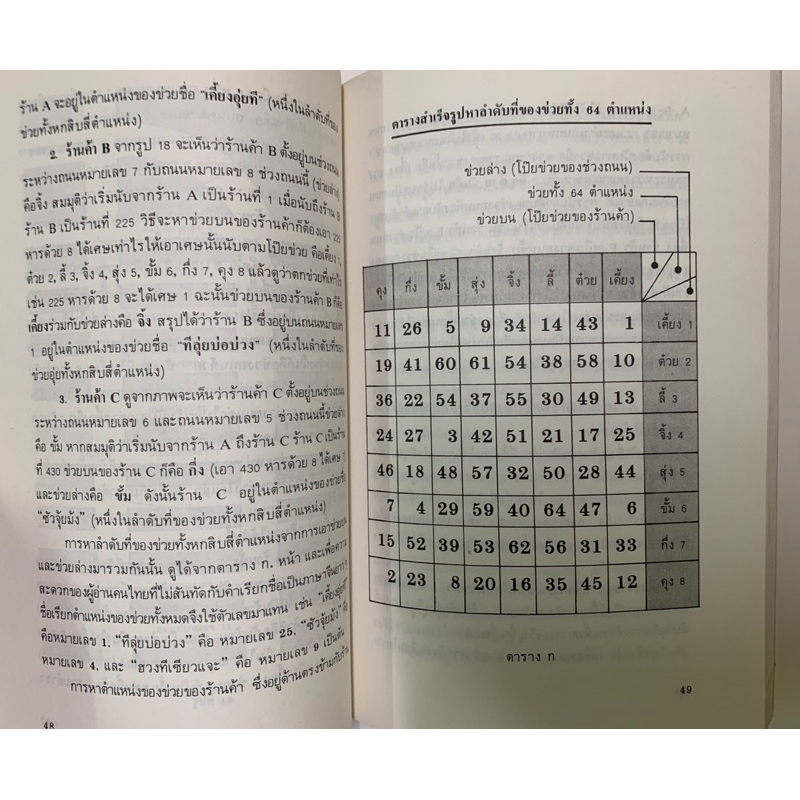 ร้าน A จะอยู่ในตำแหน่งของข่วยชื่อ "เคี้ยงอุ่ยที" (หนึ่งในลำดับที่ของ
ข่วยทั้งหกสิบสี่ตำแหน่ง)
2. ร้านค้า B จากรูป 18 จะเห็นว่าร้านค้า B ตั้งอยู่บนช่วงถนน
ระหว่างถนนหมายเลข 7 กับถนนหมายเลข 8 ช่วงถนนนี้ (ข่วยล่าง)
คือจิ้ง สมมุติว่าเริ่มนับจากร้าน A เป็นร้านที่ 1 เมื่อนับถึงร้าน B
ร้าน B เป็นร้านที่ 225 วิธีจะหาข่วยบนของร้านค้าก็ต้องเอา 225
หารด้วย 8 ได้เศษเท่าไรให้เอาเศษนั้นนับตามโป๊ยข่วย คือเคี้ยง 1,
ต๋วย 2, ลี้ 3, จิ้ง 4, สุ่ง 5, ขั้ม 6, กึ่ง 7, คุง 8 แล้วดูว่าตกข่วยที่เท่าไร
เช่น 225 หารด้วย 8 จะได้เศษ 1 ฉะนั้นข่วยบนของร้านค้า B ก็คือ
เคี้ยงร่วมกับข่วยล่างคือ จิ้ง สรุปได้ว่าร้าน B ซึ่งอยู่บนถนนหมายเลข
1 อยู่ในตำแหน่งของข่วยชื่อ "ทีลุ่ยบ่อบ่วง" (หนึ่งในลำดับที่ของ
ข่วยอุ่ยทั้งหกสิบสี่ตำแหน่ง)
3. ร้านค้า C ดูจากภาพจะเห็นว่าร้านค้า C ตั้งอยู่บนช่วงถนน
ระหว่างถนนหมายเลข 6 และถนนหมายเลข 5 ช่วงถนนนี้ข่วยล่าง
คือ ขั้ม หากสมมุติว่าเริ่มนับจากร้าน A ถึงร้าน C ร้าน C เป็นร้าน
ที่ 430 ข่วยบนของร้าน C ก็คือ กึ่ง (เอา 430 หารด้วย 8 ได้เศษ
และข่วยล่างคือ ขั้ม ดังนั้นร้าน C อยู่ในตำแหน่งของข่วยชื่อ
"ซัวจุ้ยม้ง" (หนึ่งในลำดับที่ของข่วยทั้งหกสิบสี่ตำแหน่ง)
การหาลำดับที่ของข่วยทั้งหกสิบสี่ตำแหน่งจากการเอาข่วยบน
และข่วยล่างมารวมกันนั้น ดูได้จากตาราง ก. หน้า และเพื่อความ
สะดวกของผู้อ่านคนไทยที่ไม่สันทัดกับคำเรียกชื่อเป็นภาษาจีน
ชื่อเรียกตำแหน่งของข่วยทั้งหมดจึงใช้ตัวเลขมาแทน เช่น "เคี้ยงอุ่ยที"
คือหมายเลข 1, "ทีลุ่ยบ่อบ่วง" คือ หมายเลข 25, "ซัวจุ้ยม้ง" คือ
หมายเลข 4, และ "ฮวงทีเซียวแจะ" คือ หมายเลข 9 เป็นต้น
การหาตำแหน่งของข่วยของร้านค้า ซึ่งอยู่ด้านตรงข้ามกับร้าน
48
ตารางสำเร็จรูปหาลำดับที่ของข่วยทั้ง 64 ตำแหน่ง
ข่วยล่าง (โป๊ยข่วยของช่วงถนน)
ข่วยทั้ง 64 ตำแหน่ง
ข่วยบน (โป๊ยข่วยของร้านค้า)
คุง กึ่ง ขั้ม สุ่ง จิ้ง ลี้ ต๋วย เคี้ยง
11 26 5 9 34 14 43 1 เคี้ยง 1
19 41 60 61 54 38 58 10 ต๋วย 2
36 22 54 37 55 30 49 13 ลี้ 3
24 27 3 42 51 21 17 25 จิ้ง 4
46 18 48 57 32 50 28 44 สุ่ง 5
7 4 29 59 40 64 47 6 ขั้ม 6
15 52 39 53 62 56 31 33 กึ่ง 7
2 23 8 20 16 35 45 12 คุง 8
ตาราง ก
49